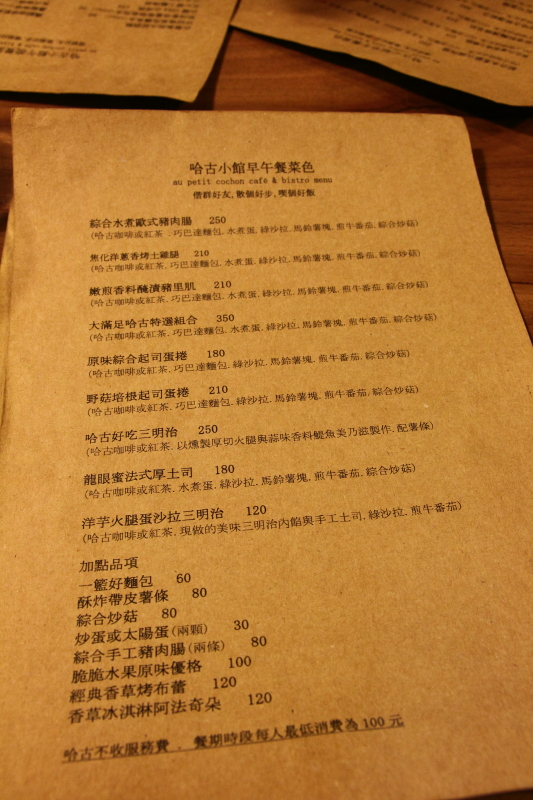 哈古小館早午餐菜色
au petit cochon café & bistro menu
偕群好友, 散個好步, 喫個好飯
綜合水煮歐式豬肉腸 250
(哈古咖啡或紅茶 . 巧巴達麵包. 水煮蛋. 綠沙拉. 馬鈴薯塊. 煎牛番茄. 綜合炒菇)
焦化洋蔥香烤土雞腿 210
(哈古咖啡或紅茶. 巧巴達麵包. 水煮蛋. 綠沙拉. 馬鈴薯塊. 煎牛番茄. 綜合炒菇)
嫩煎香料醃漬豬里肌 210
(哈古咖啡或紅茶. 巧巴達麵包. 水煮蛋. 綠沙拉. 馬鈴薯塊. 煎牛番茄. 綜合炒菇)
大滿足哈古特選組合 350
(哈古咖啡或紅茶. 巧巴達麵包. 水煮蛋. 綠沙拉. 馬鈴薯塊. 煎牛番茄. 綜合炒菇)
原味綜合起司蛋捲 180
(哈古咖啡或紅茶. 巧巴達麵包. 綠沙拉. 馬鈴薯塊. 煎牛番茄. 綜合炒菇)
野菇培根起司蛋捲 210
(哈古咖啡或紅茶. 巧巴達麵包. 綠沙拉. 馬鈴薯塊. 煎牛番茄. 綜合炒菇)
哈古好吃三明治 250
(哈古咖啡或紅茶. 以燻製厚切火腿與蒜味香料鯷魚美乃滋製作. 配薯條)
龍眼蜜法式厚土司 180
(哈古咖啡或紅茶. 水煮蛋. 綠沙拉. 馬鈴薯塊. 煎牛番茄. 綜合炒菇)
洋芋火腿蛋沙拉三明治 120
(哈古咖啡或紅茶. 現做的美味三明治內餡與手工土司. 綠沙拉. 煎牛番茄)
加點品項
一籃好麵包 60
酥炸帶皮薯條 80
綜合炒菇 80
炒蛋或太陽蛋(兩顆) 30
綜合手工豬肉腸(兩條) 80
脆脆水果原味優格 100
經典香草烤布蕾 120
香草冰淇淋阿法奇朵 120
哈古不收服務費 . 餐期時段每人最低消費為 100 元